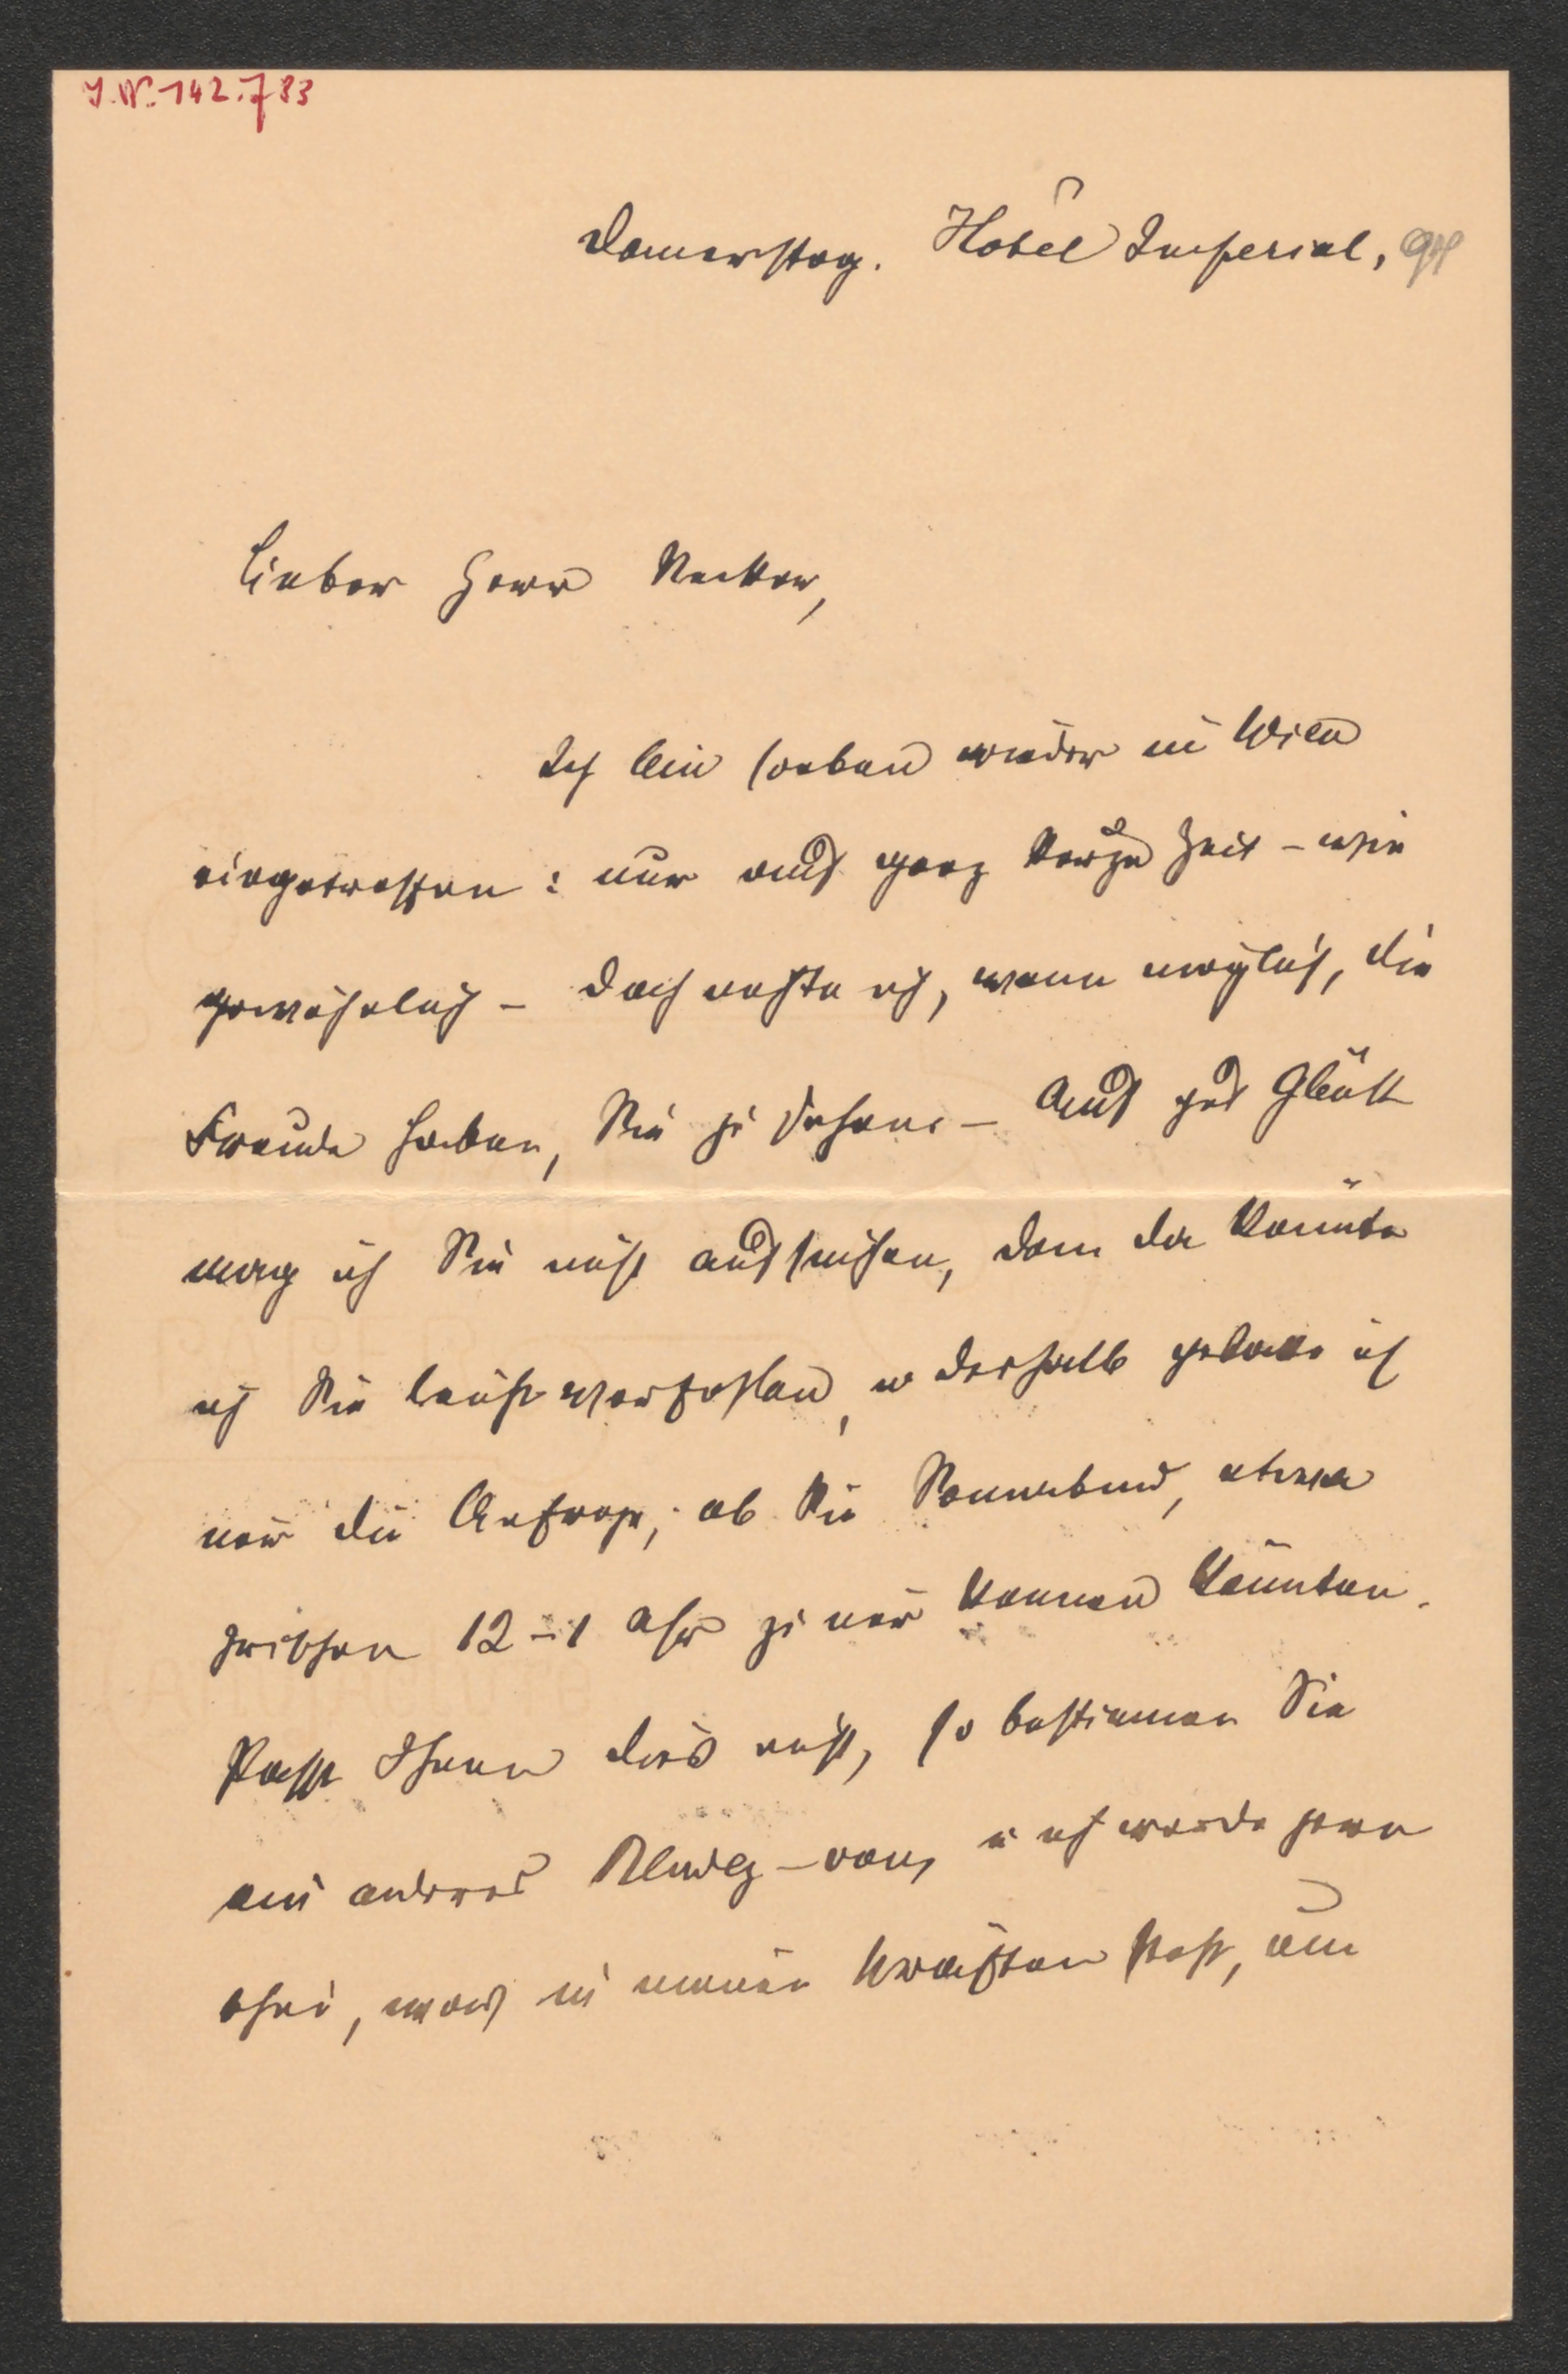 J.N. 142.783
Donnerstag. Hôtel Imperial,
Lieber Herr Necker,
Ich bin soeben wieder in Wien
eingetroffen: nur auf ganz kurze Zeit – wie
gewöhnlich – doch möchte ich, wenn möglich, die
Freude haben, Sie zu sehen. – Auf gut Glück
mag ich Sie nicht aufsuchen, denn da könnte
ich Sie leicht verfehlen, u deshalb gestatte ich
mir die Anfrage, ob Sie Sonnabend, etwa
zwischen 12–1 Uhr zu mir kommen könnten.
Passt Ihnen dies nicht, so bestimmen Sie
ein anderes Rendez-vous, u ich werde gern
thun, was in meinen Kräften steht, um